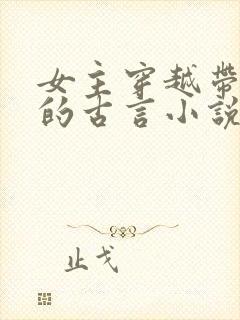 女主穿越帶
的古言小說
止戈